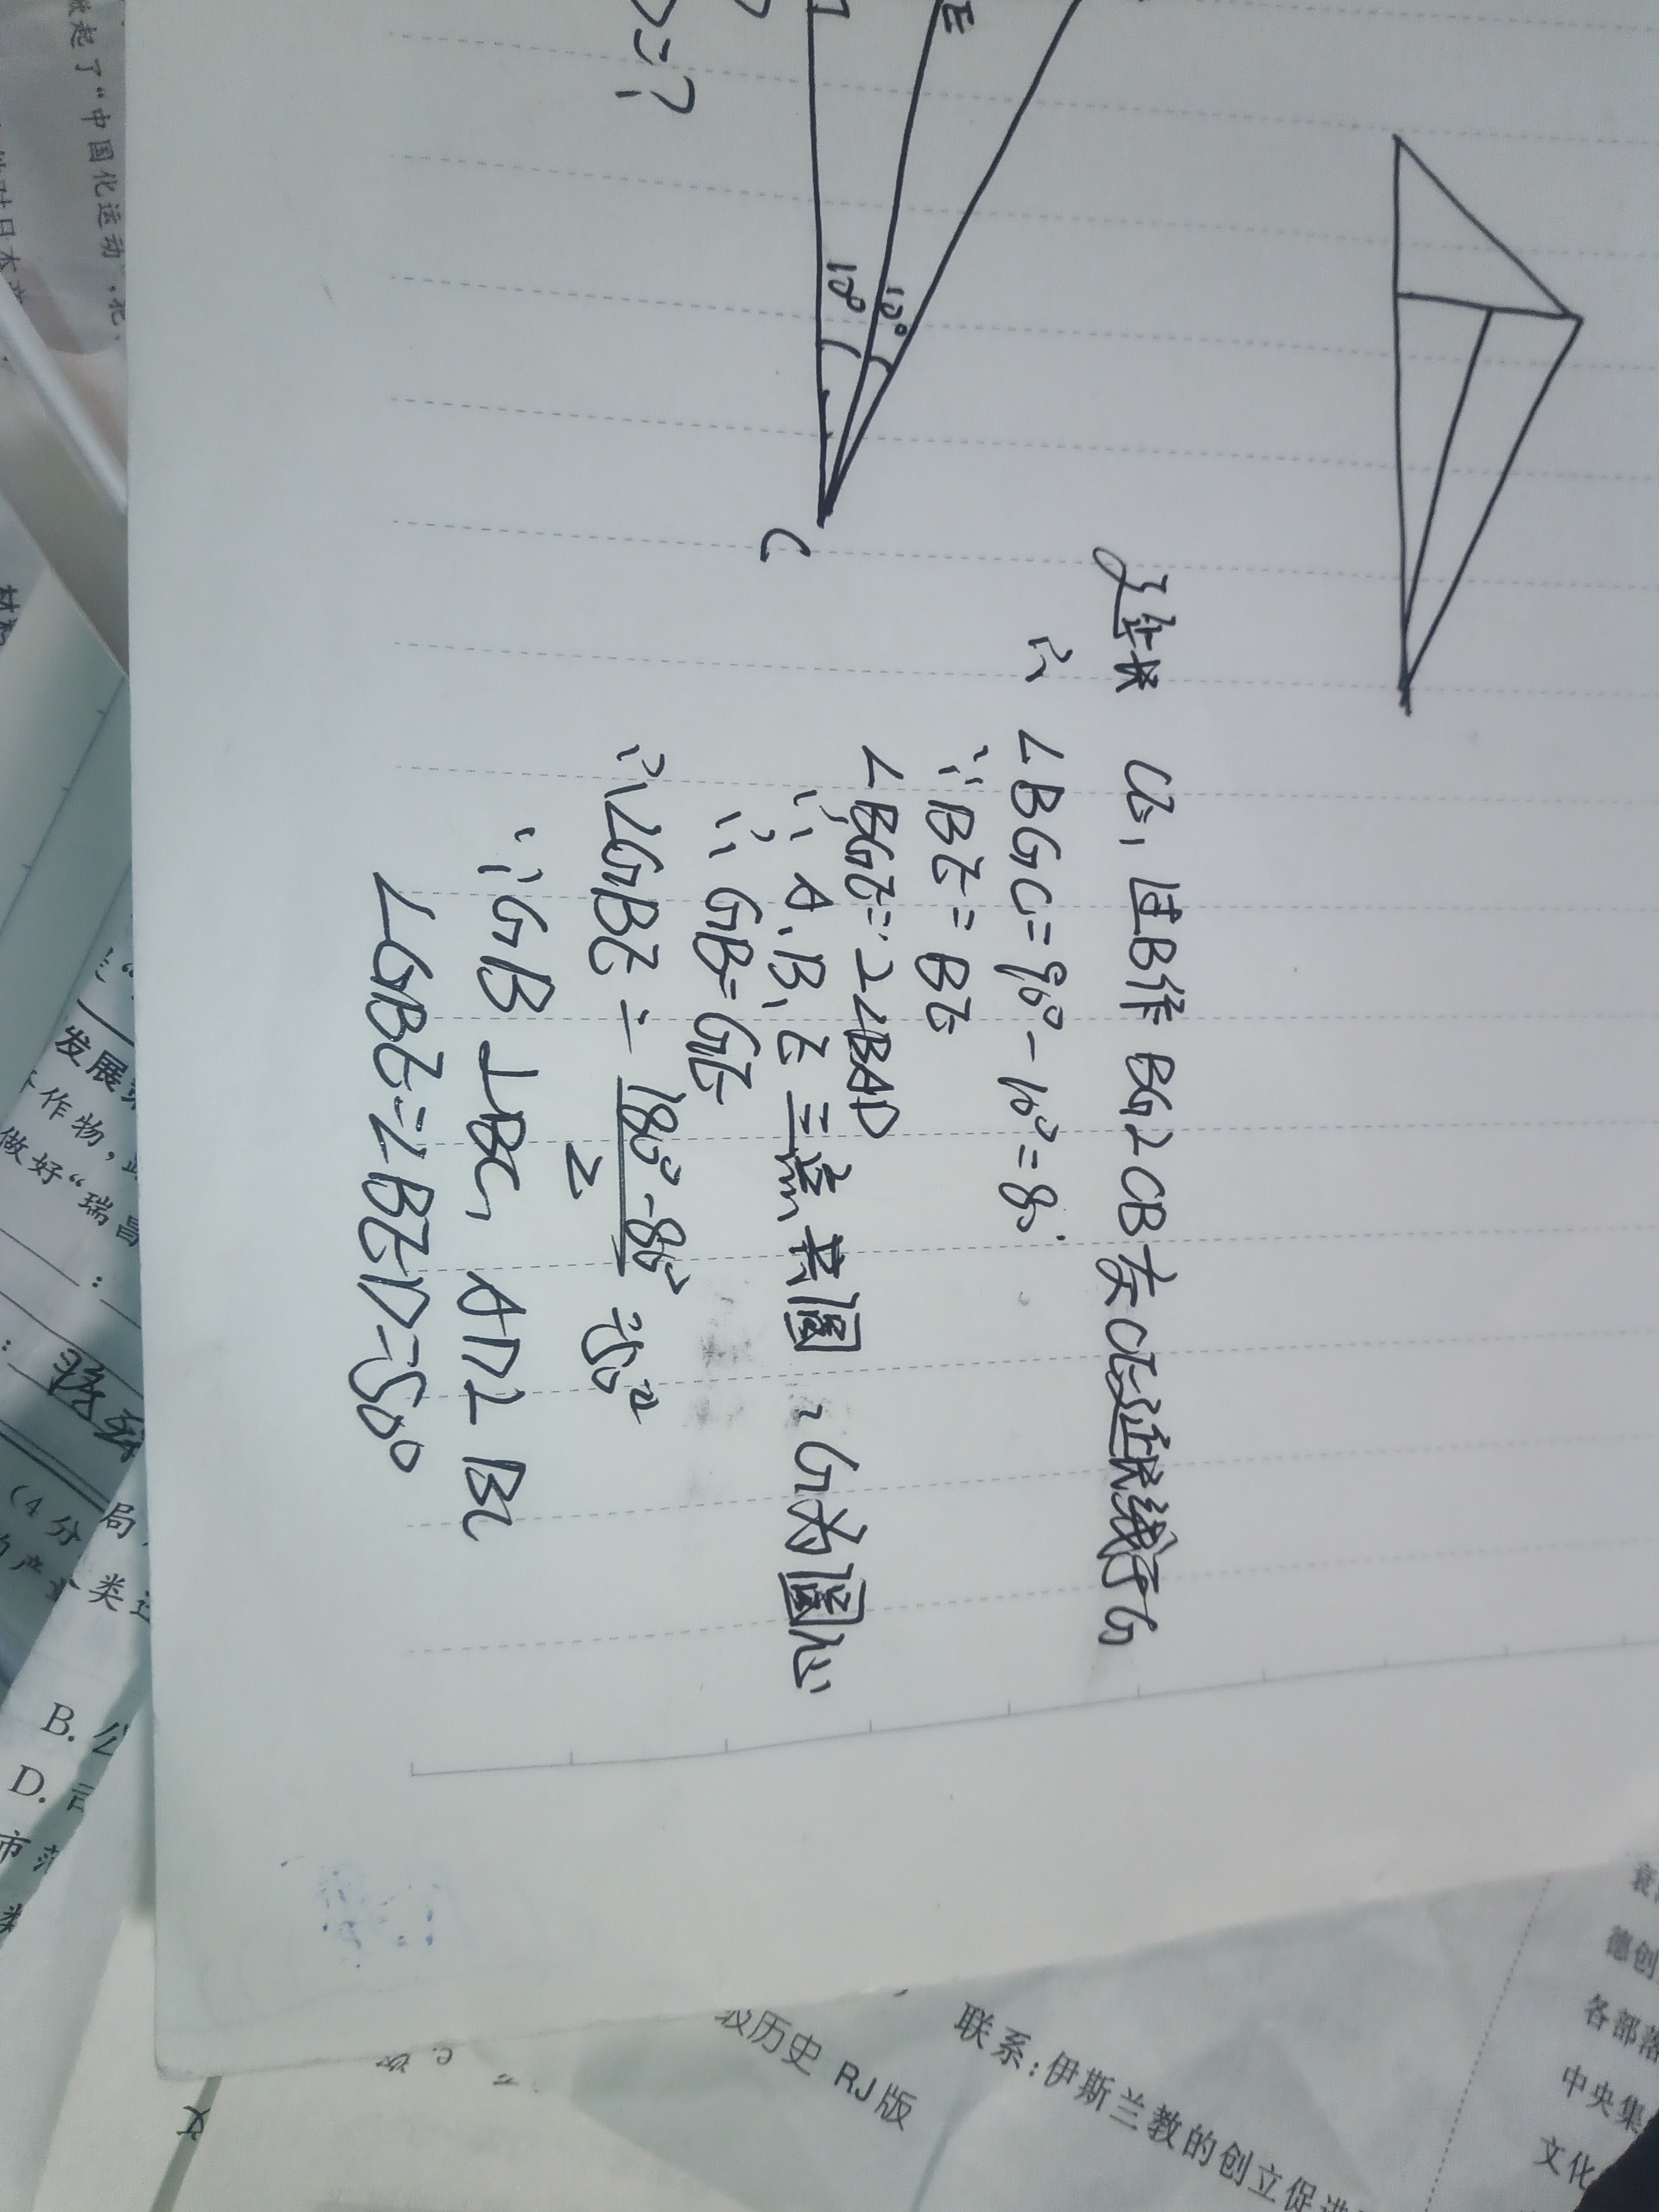 =?
E
10°
10°
C
延长 CE,过B作 BG⊥CB交CE延长线于G
∴ ∠BGC=90°-10°=80°
∵BE=BE
∠BGE=2∠BAD
∴A、B、E三点共圆,G为圆心
∴GB=GE
∴∠GBE=180°-80°
2
=50°
∵GB⊥BC,AD⊥BC
∠GBE=∠BED=50°
起了“中国化运动
发展
作物,
做好“瑞昌
(4分
局
类
B.公
D.言
市
级历史 RJ版
联系:伊斯兰教的创立促进
德创
各部落
中央集
文化